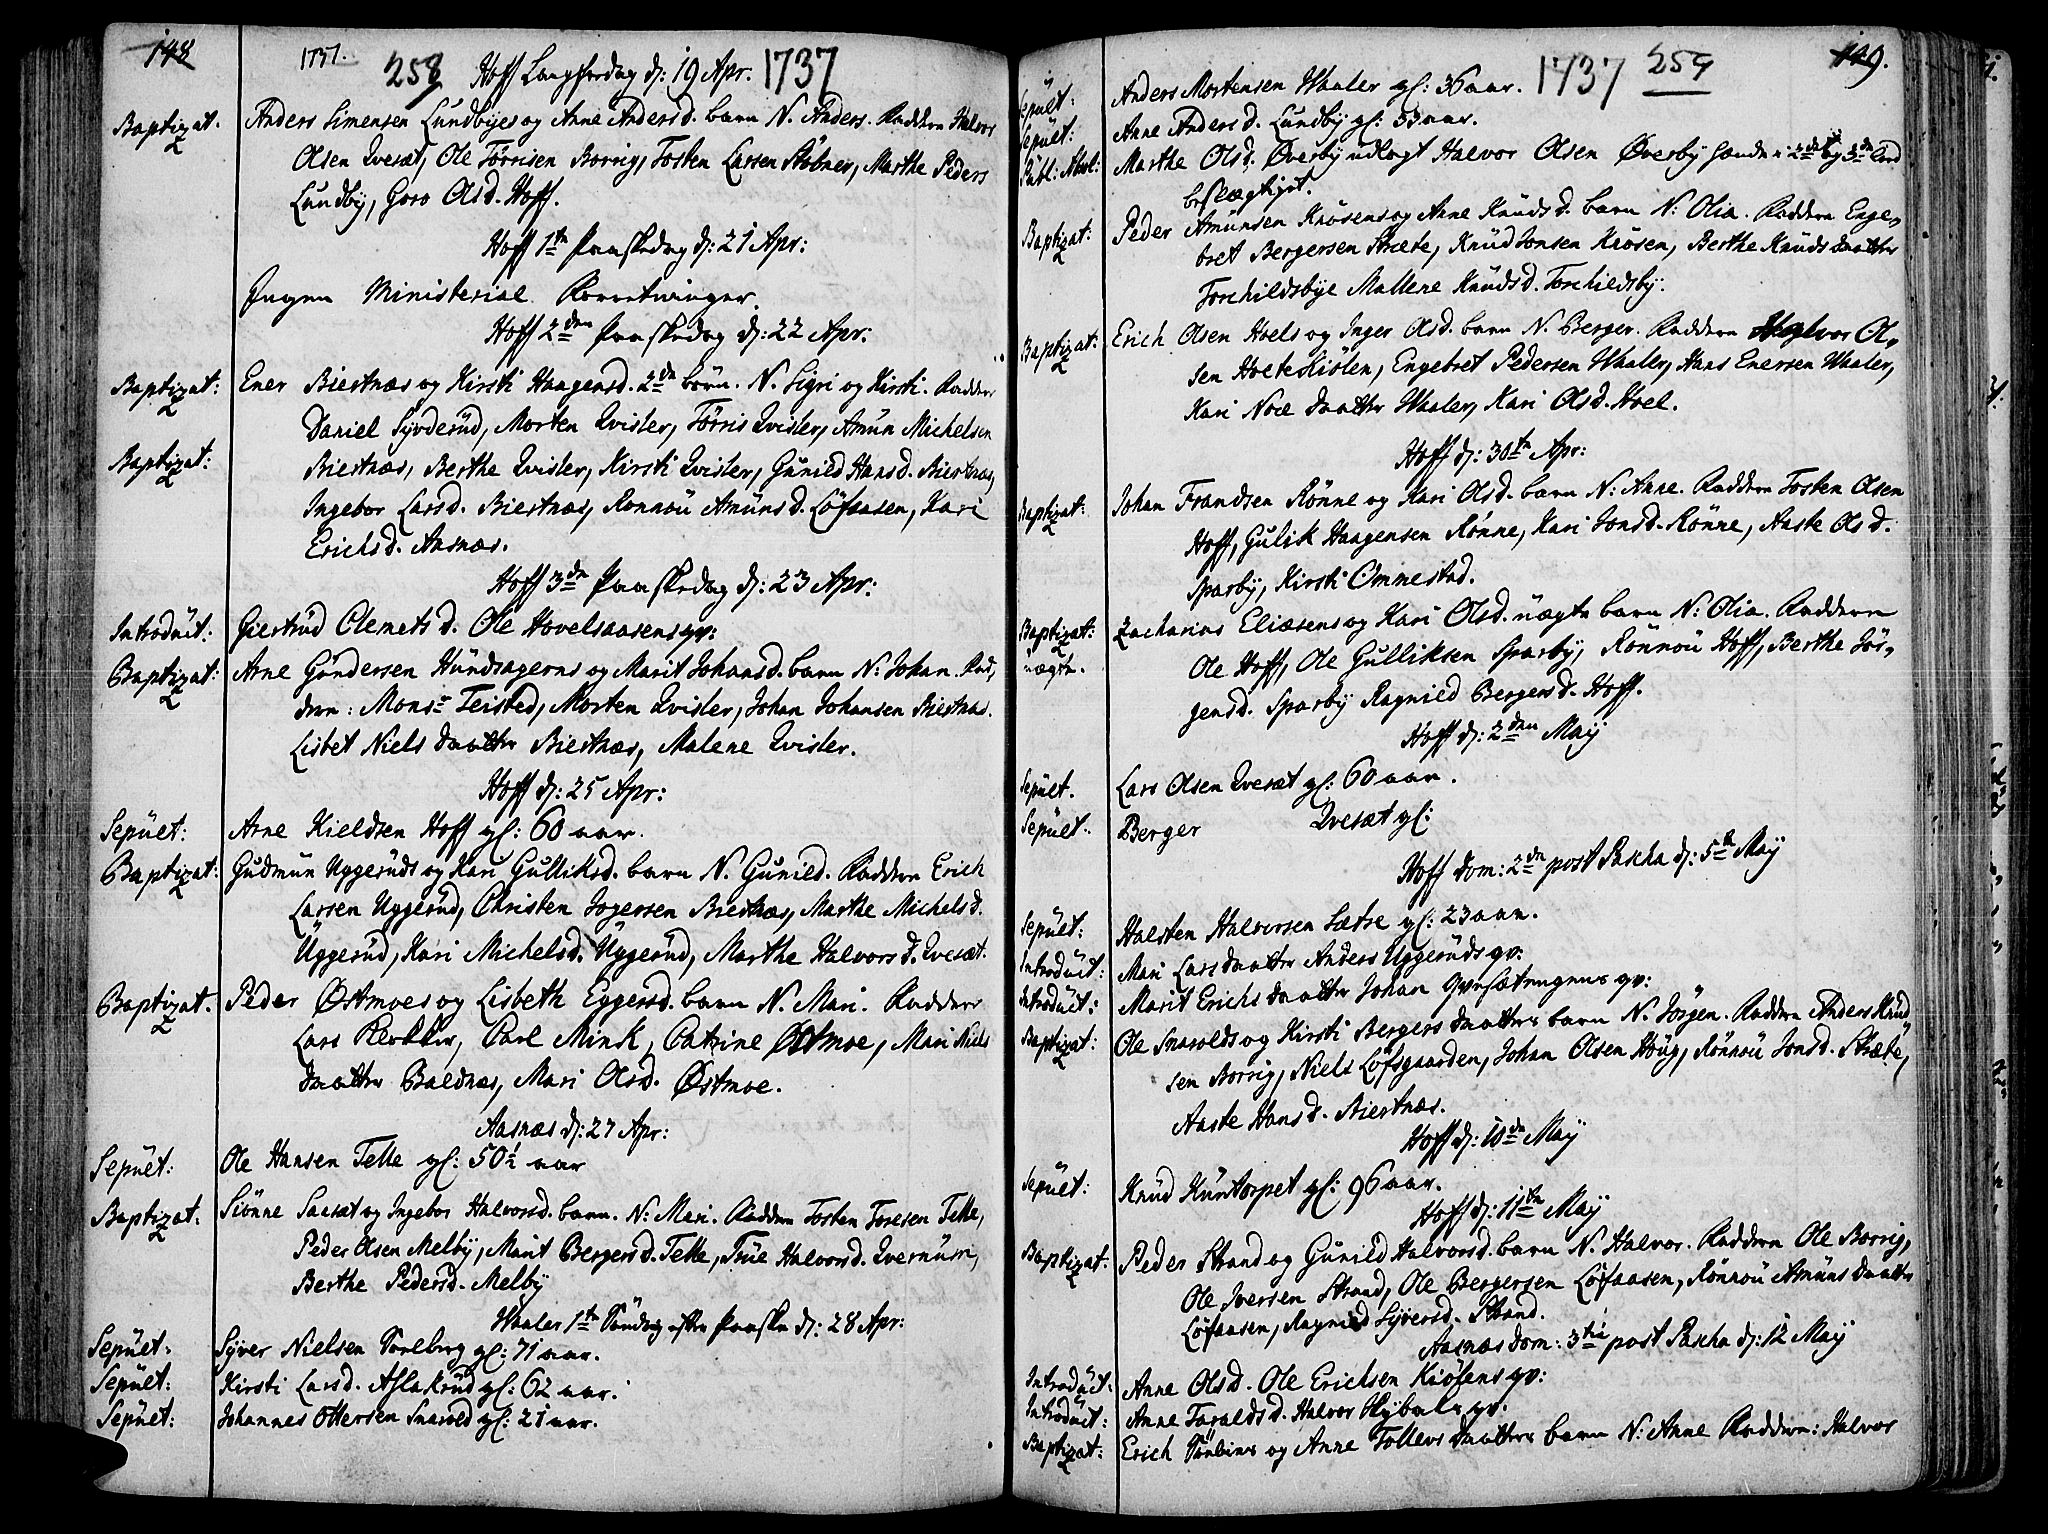 148
1737.
258 Hoff Langfredag d: 19 Apr. 1737
Baptizat. Anders Simensen Lundbyes og Anne Andersd. barn N. Anders. Faddere Halvor
Olsen Qvesæt, Ole Törrisen Borrig, Tosten Larsen Stöbner, Marthe Peders
Lundby, Goro Olsd. Hoff.
Hoff 1te Paaskedag d: 21 Apr:
Ingen Ministerial Forretninger.
Hoff 2den Paaskedag d: 22 Apr:
Baptizat: Ener Biertnæs og Kirsti Haagensd. 2de börn. N. Sigri og Kirsti. Faddere
Daniel Syvderud, Morten Qvisler, Törris Qvisler, Amün Michelsen
Baptizat: Biertnæs, Berthe Qvisler, Kirsti Qvisler, Günild Hansd. Biertnæs,
Ingebor Larsd. Biertnæs, Ronnou Amünsd. Löfaasen, Kari
Erichsd. Aasnæs.
Hoff 3de Paaskedag d: 23 Apr:
Introdüit: Giertrüd Clemetsd. Ole Hovelsaasens qv:
Baptizat: Arne Gündersen Hundsagerens og Marit Johansd. barn N: Johan. Fad,
dere: Monsr Teisted, Morten Qvisler, Johan Johansen Biertnæs.
Lisbet Niels daatter Biertnæs, Malene Qvisler.
Hoff d: 25 Apr:
Sepüet: Arne Kieldsen Hoff gl: 60 aar.
Baptizat: Gudmün Uggerüds og Kari Gulliksd. barn N. Günild. Faddere Erich
Larsen Uggerüd, Christen Jogersen Biertnæs, Marthe Michelsd.
Uggerüd, Kari Michelsd. Uggerüd, Marthe Halvorsd. Qvesæt.
Baptizat. Peder Østmoes og Lisbeth Eggersd. barn N. Mari. Faddere
Lars Carl Mink, Catrine Østmoe, Mari Niels
daatter Baldnæs, Mari Olsd. Østmoe.
Aasnæs d: 27 Apr:
Sepüet: Ole Hansen Telle gl: 50½ aar
Baptizat. Siönne Sæesæt og Ingebor Halvorsd. barn. N: Mari. Faddere Tosten Toresen Telle,
Peder Olsen Melby, Marit Bergersd. Telle, Trüe Halvorsd. Qvernüm,
Berthe Pedersd. Melby
Waaler 1te Söndag efter Paaske d: 28 Apr:
Sepüet: Syver Nielsen Sorlberg gl: 71 aar.
Sepüet: Kirsti Larsd. Aslakrüd gl: 62 aar.
Sepüet: Johannes Ottersen Snarold gl: 21 aar.
1737 259 149.
Sepüet: Anders Mortensen Waaler gl: 36 aar.
Sepüet: Anne Andersd. Lundby gl: 53 aar.
Publ: Absol: Marthe Olsd. Øverby udlagt Halvor Olsen Øverby hændes 2det og 3de Leed
beslægtiget.
Baptizat: Peder Amünsen Krösens og Anne Knüdsd. barn N: Olia. Faddere Enge,
bret Bergersen Stræte, Knüd Jonsen Krösen, Berthe Knüds daatter
Torchildsbye Mallene Knüdsd. Torchildsby.
Baptizat: Erich Olsen Hoels og Inger Olsd. barn N. Berger. Faddere Halvor Ol,
sen Hoelekiölen, Engebret Pedersen Waaler, Hans Enersen Waaler,
Kari Noe daatter Waaler, Kari Olsd. Hoel.
Hoff d: 30te Apr:
Baptizat: Johan Frandsen Rönne og Kari Olsd. barn N: Anne. Faddere Tosten Olsen
Hoff, Gulik Haagensen Rönne, Kari Jonsd. Rönne, Aaste Olsd.
Sparby, Kirsti Ommestad.
Baptizat: Zacharias Eliæsens og Kari Olsd. uægte barn N: Olia. Faddere
uægte. Ole Hoff, Ole Gulliksen Sparby, Rönnou Hoff, Berthe Jör,
gensd. Sparby Ragnild Bergersd. Hoff.
Hoff d: 2den May
Sepüet. Lars Olsen Qvesæt gl: 60 aar.
Sepüet. Berger Qvesæt gl:
Hoff Dom: 2da post Pascha d: 5te May
Sepüet: Halsten Halvorsen Sætre gl: 23 aar.
Introdüit: Mari Lars daatter Anders Uggerüds qv:
Introdüit: Marit Erichs daatter Johan qv:
Baptizat: Ole Snarolds og Kirsti Bergers daatters barn N. Jörgen. Faddere Anders Knüd
sen Borrig, Niels Löfsgaarden, Johan Olsen Houg, Rönnou Jonsd. Stræte,
Aaste Hansd. Biertnæs.
Hoff d: 10de May
Sepüet: Knüd Küntorpet gl: 96 aar.
Hoff d: 11te May
Baptizat: Peder Strand og Günild Halvorsd. barn N. Halvor. Faddere Ole Borrig,
Ole Iversen Strand, Ole Bergersen Löfaasen, Rönnou Amüns daatter
Löfaasen, Ragnild Syversd. Strand.
Aasnæs Dom: 3tia post Pascha d: 12 May
Introdüit: Anne Olsd. Ole Erichsen Kiölens qv:
Introdüit: Anne Taraldsd. Halvor Flybak qv:
Baptizat: Erich og Anne Tollevs daatters barn N: Anne Faddere: Halvor